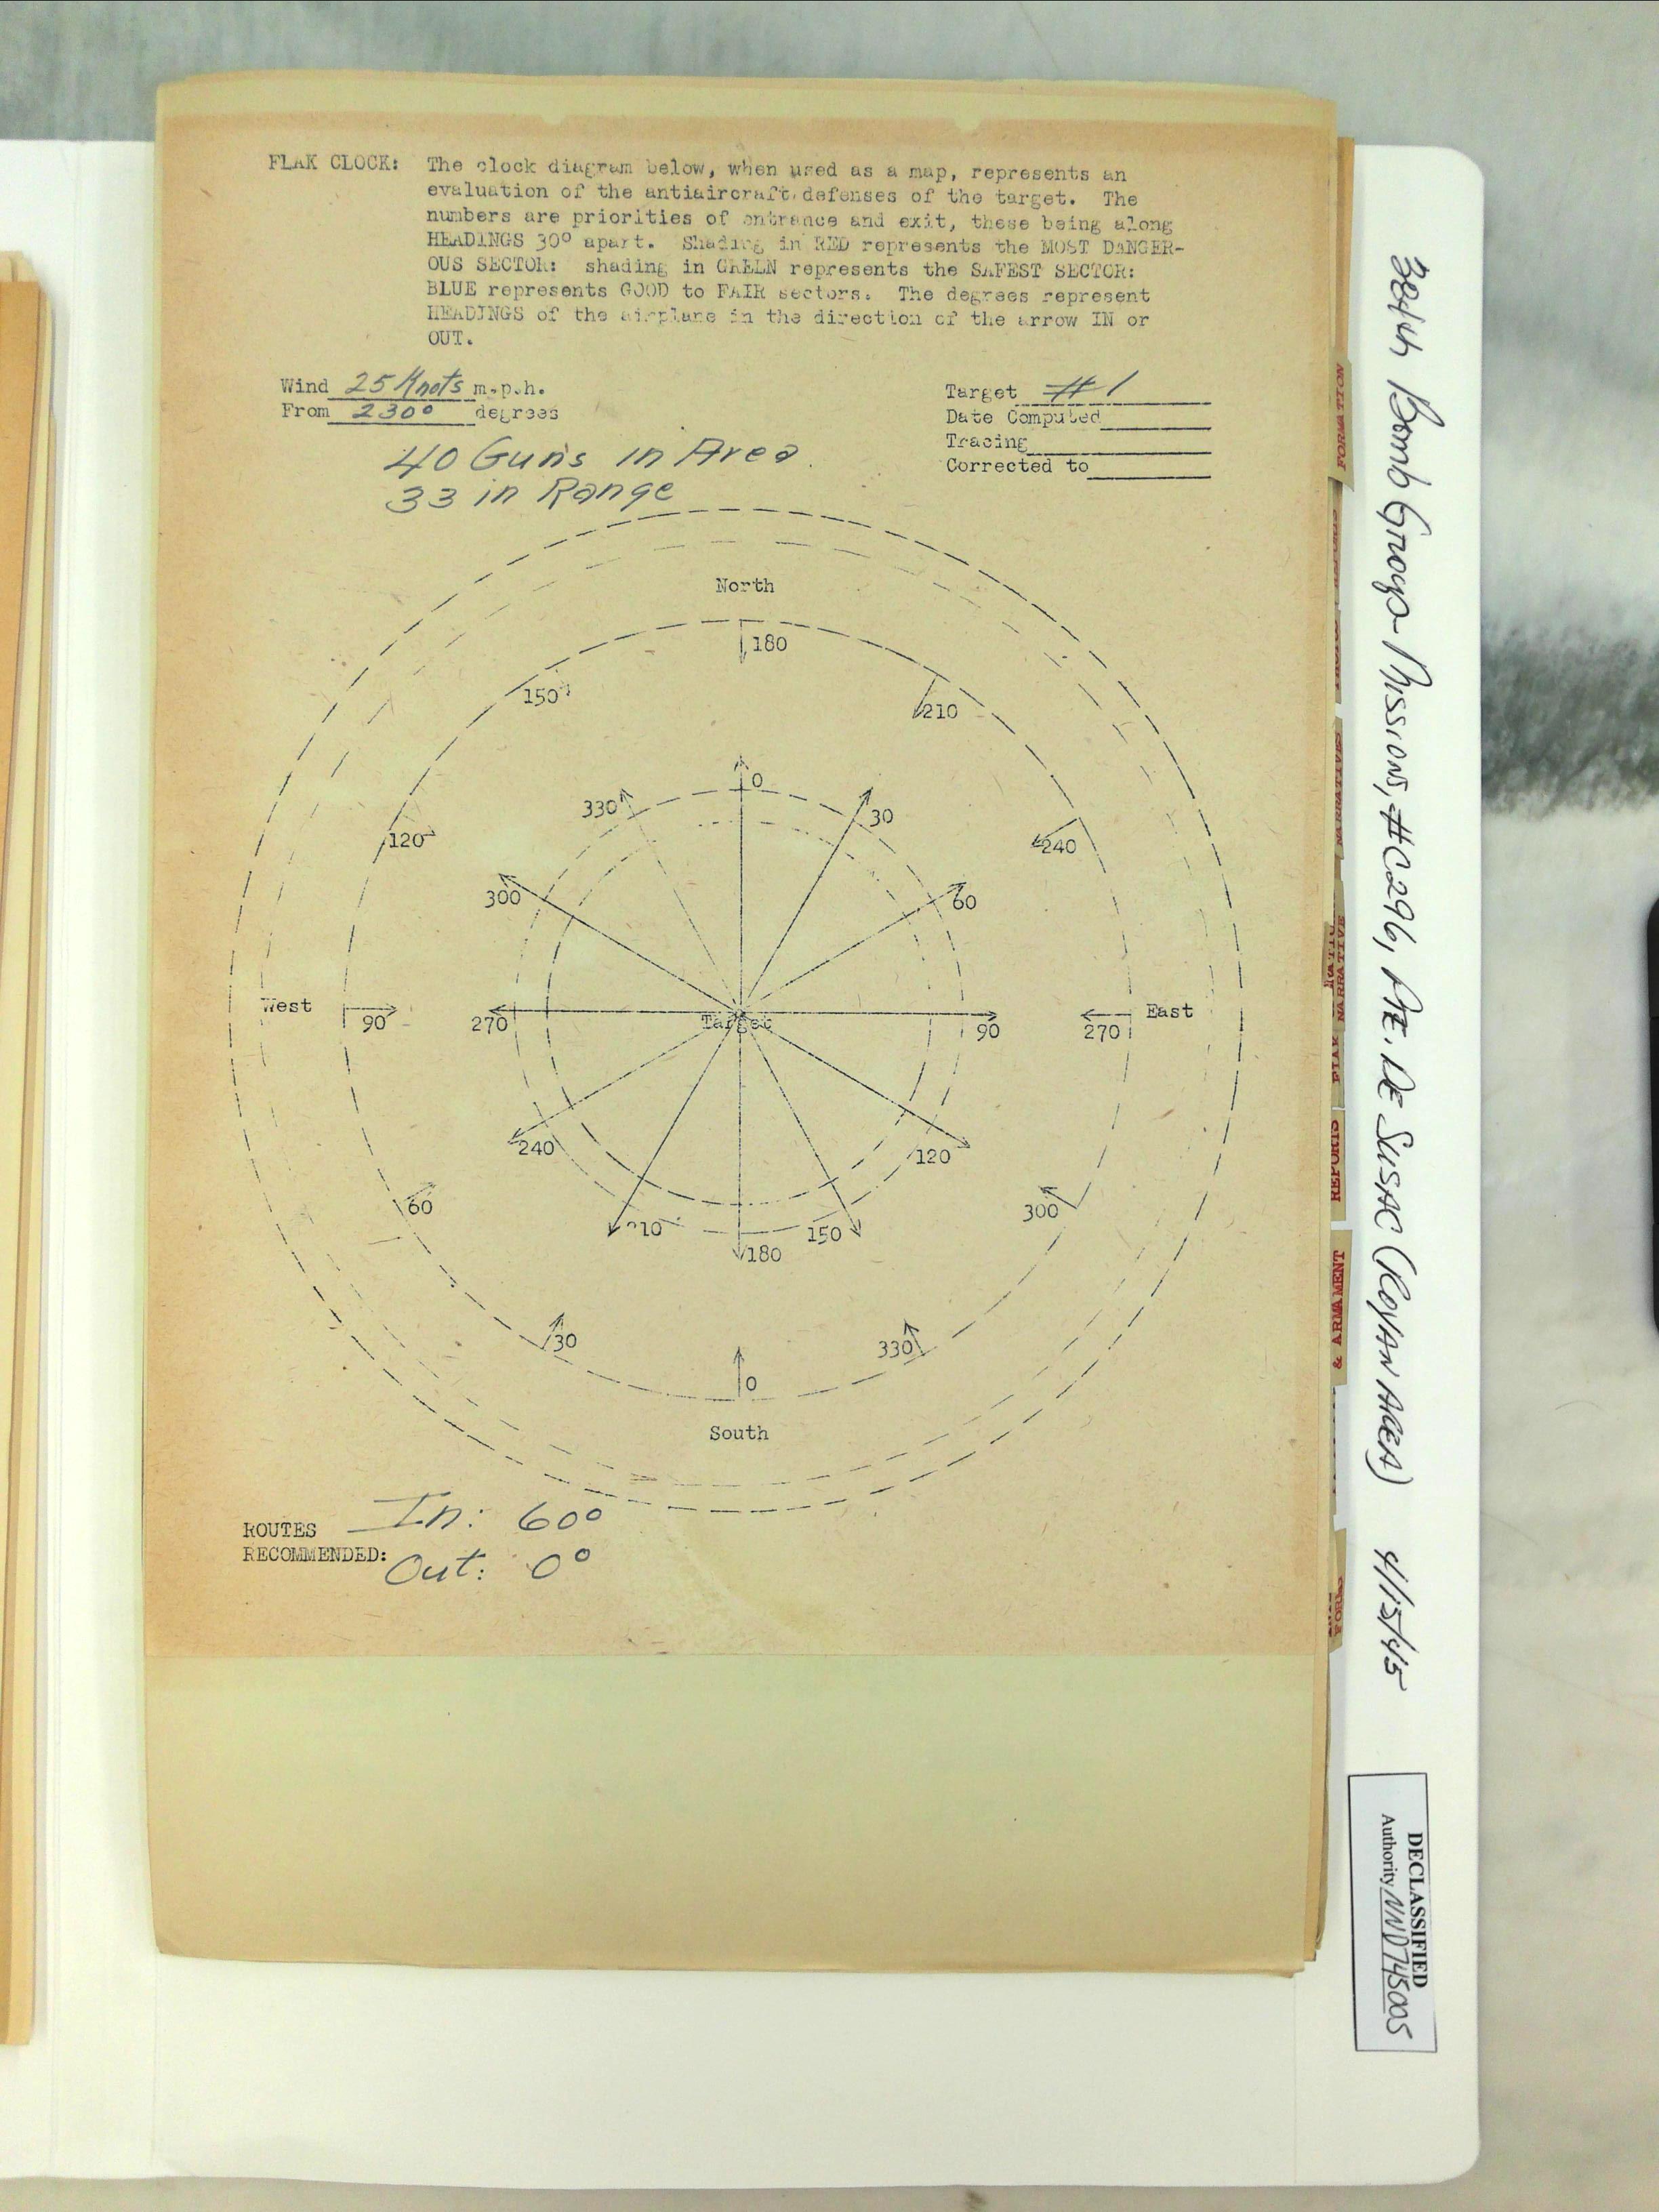 FLAK CLOCK: The clock diagram below, when used as a map, represents an
evaluation of the antiaircraft defenses of the target. The
numbers are priorities of entrance and exit, these being along
HEADINGS 30° apart. Shading in RED represents the MOST DANGER-
OUS SECTOR: shading in GREEN represents the SAFEST SECTOR:
BLUE represents GOOD to FAIR sectors. The degrees represent
HEADINGS of the airplane in the direction of the arrow IN or
OUT.
Wind 25 Knots m.p.h.
From 230° degrees
Target #1
Date Computed
Tracing
Corrected to
40 Guns in Area
33 in Range
North
180
150
210
0
330
30
120
240
300
60
West
90
270
Target
90
270
East
240
120
60
300
210
150
180
30
330
0
South
ROUTES
RECOMMENDED:
In: 60°
Out: 0°
FORMATION
NARRATIVES
NARRATIVE
FLAK
REPORTS
& ARMAMENT
384th Bomb Group Missions, #C296, PTE. DE SUSAC (ROYAN AREA) 4/15/45
DECLASSIFIED
Authority NND745005